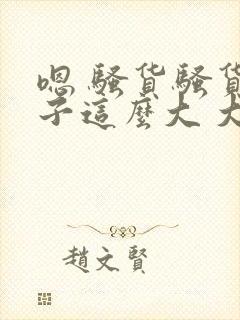 嗯 骚货骚货
子這麼大 大
趙文賢